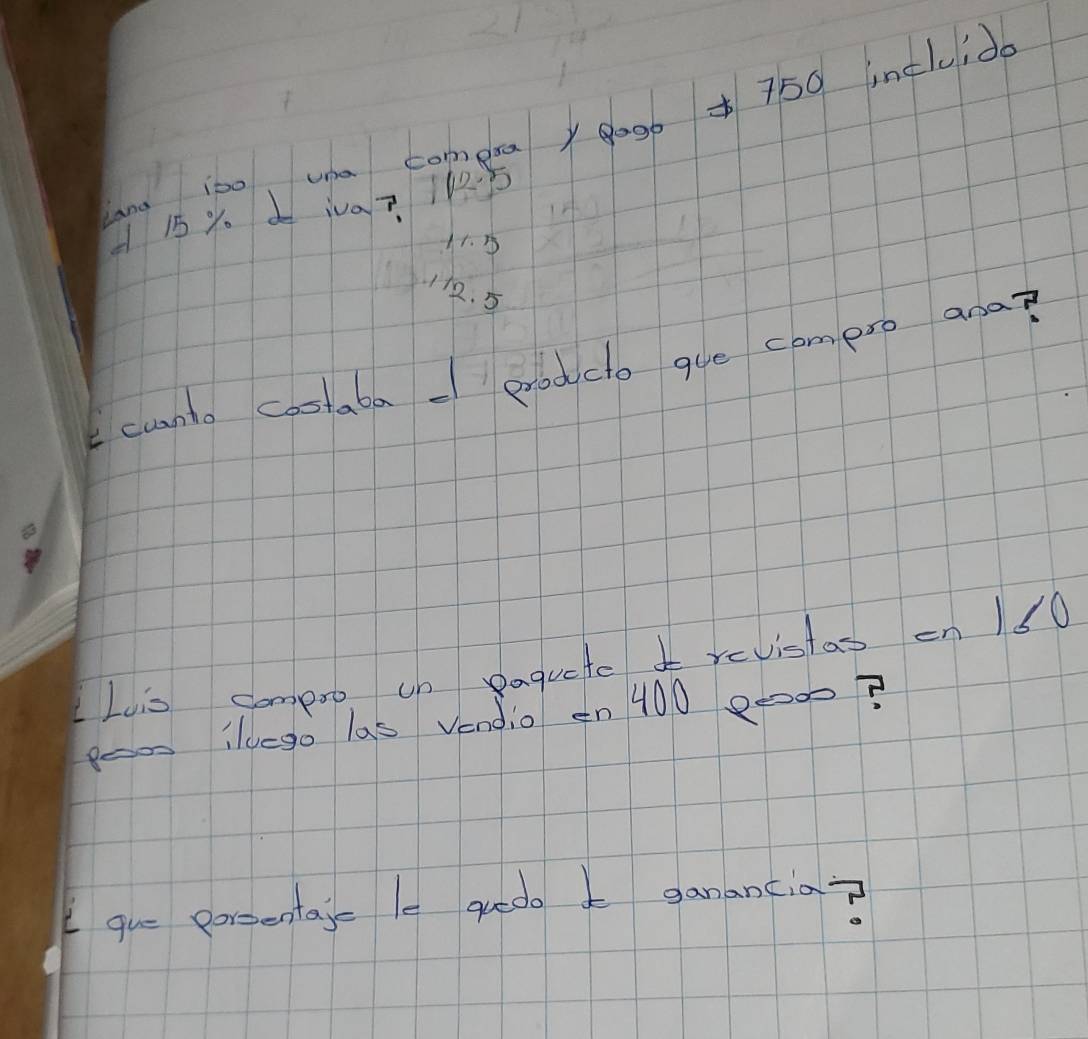 ¿ana iso una compra y pago $ 750 incluido
el 15 % de iva? 112.5
11.5
112.5
¿cuanto costaba el producto que compro ana?
¿Luis compro un paquete de revistas en 160
pesos iluego las vendio en 400 pesos?
¿que porsentaje le quedo de ganancia?